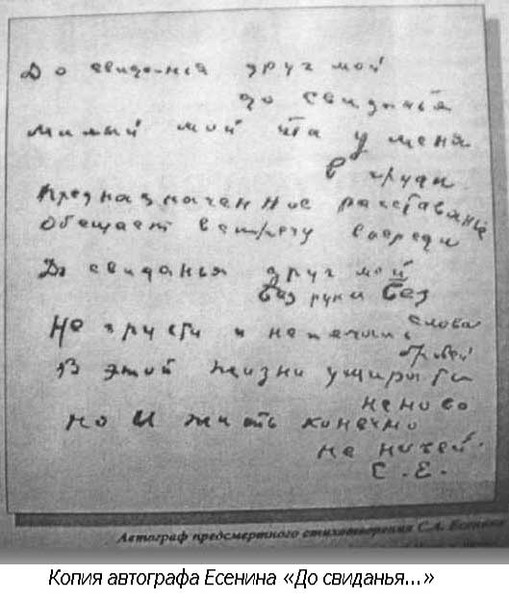 До свиданья друг мой
до свиданья
милый мой ты у меня
в груди
Предназначенное расставанье
Обещает встречу впереди
До свиданья друг мой
без руки без
слова
Не грусти и не печаль
бровей
В этой жизни умирать
неново
но и жить конечно
не новей.
С. Е.
Автограф предсмертного стихотворения С.А. Есенина
Копия автографа Есенина «До свиданья...»